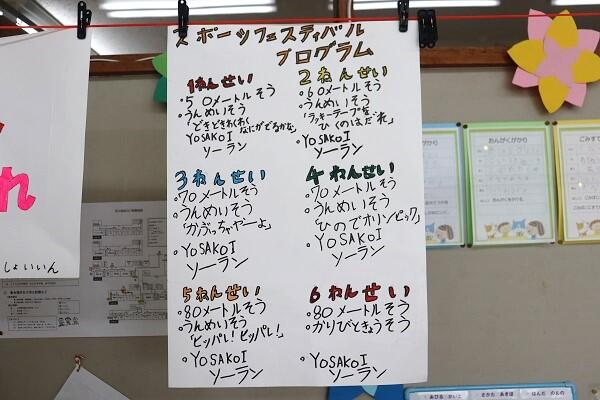 スポーツフェスティバル
プログラム
1ねんせい
・50メートルそう
・うんめいそう
「どきどきわくわく
なにがでるかな」
YOSAKOI
ソーラン
2ねんせい
・60メートルそう
・うんめいそう
「ラッキーテープを
ひくのはだれ」
・YOSAKOI
ソーラン
3ねんせい
・70メートルそう
・うんめいそう
「かぶっちゃやーよ」
・YOSAKOI
ソーラン
4ねんせい
・70メートルそう
・うんめいそう
「ひのでオリンピック」
・YOSAKOI
ソーラン
5ねんせい
・80メートルそう
・うんめいそう
「ヒッパレ!ヒッパレ!」
・YOSAKOI
ソーラン
6ねんせい
・80メートルそう
・かりびときょうそう
・YOSAKOI
ソーラン
れ
しょいいん
おんがくがかり